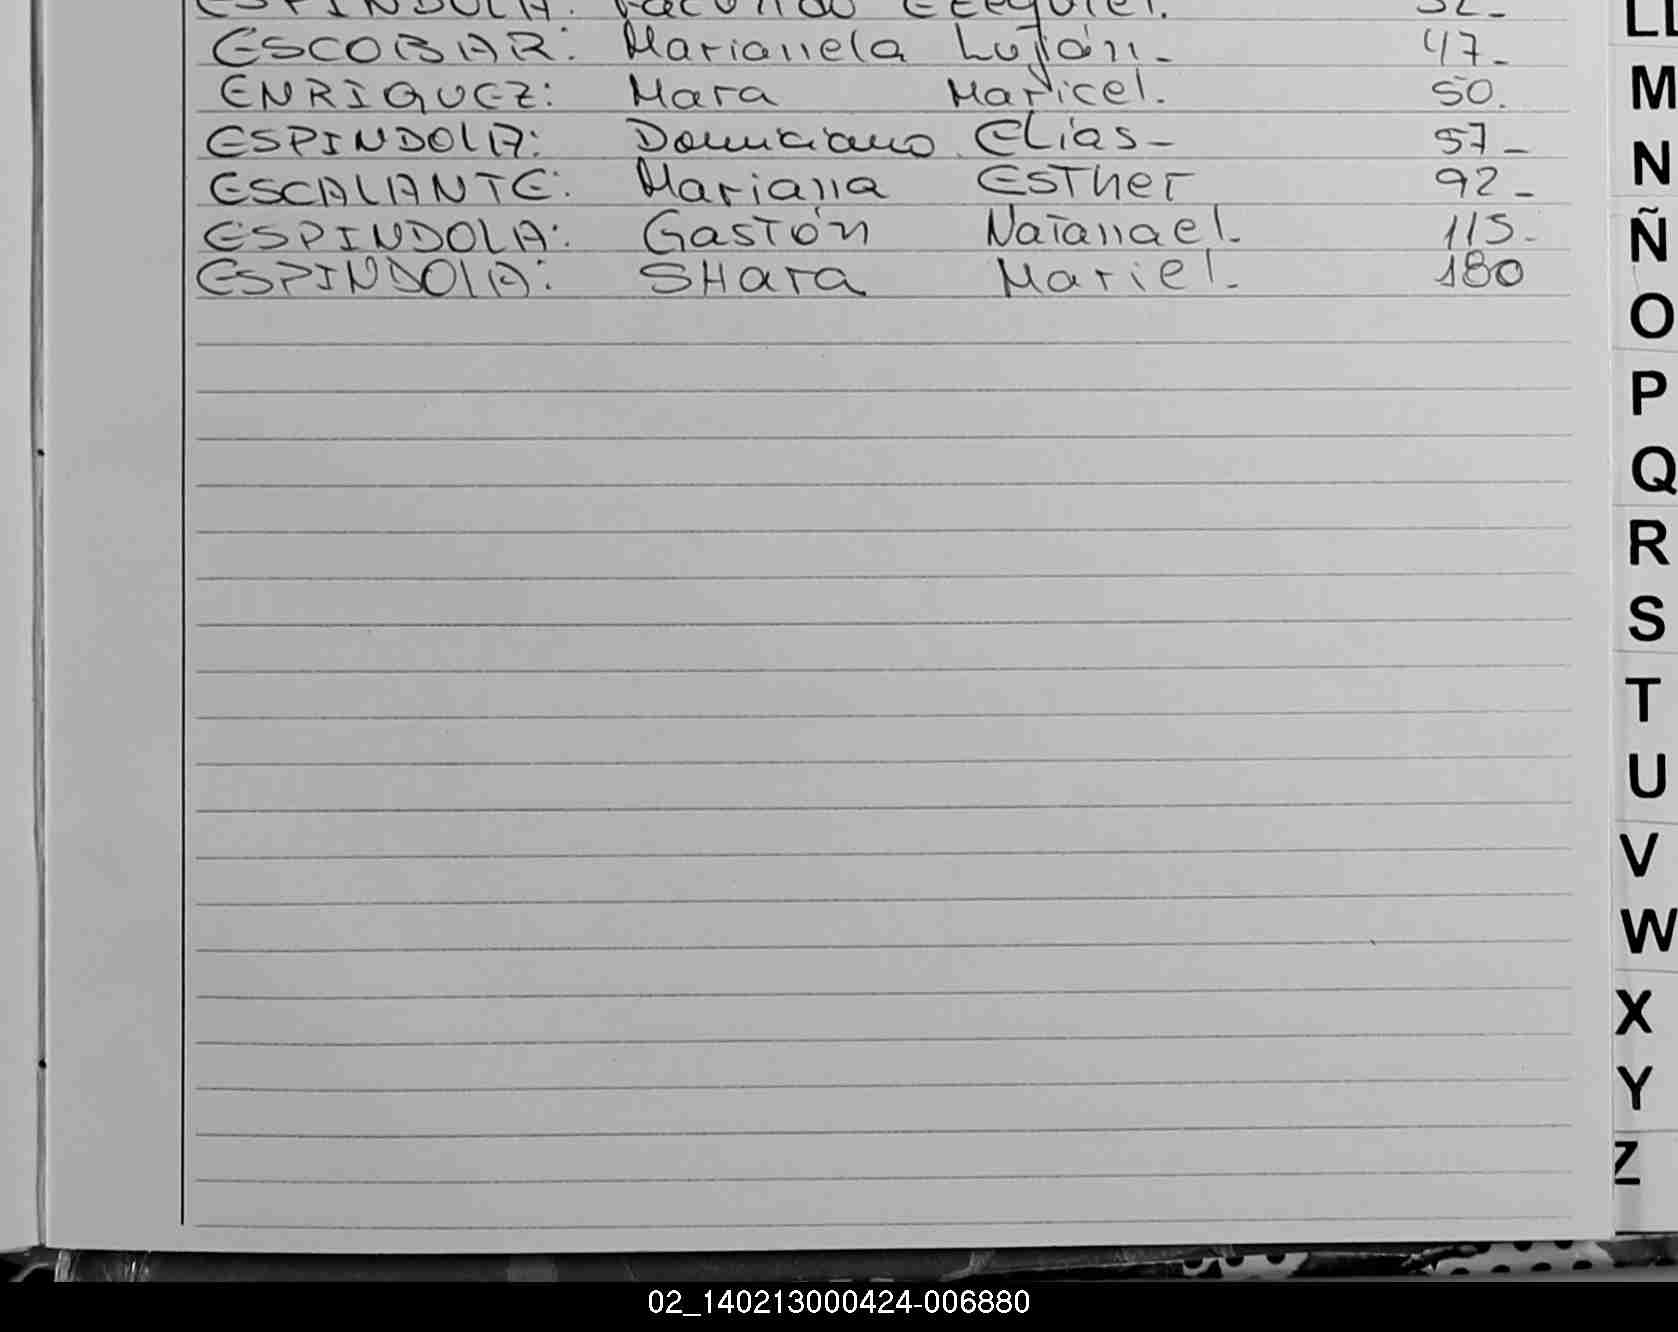 ESPINDOLA: Facundo Ezequiel. 32-
ESCOBAR: Marianela Luján- 47-
ENRIQUEZ: Mara Maricel. 50.
ESPINDOLA: Domiciano Elías- 57-
ESCALANTE: Mariana EsTher 92-
ESPINDOLA: GasTón NaTanael. 115-
ESPINDOLA: SHara Mariel. 180
LL
M
N
Ñ
O
P
Q
R
S
T
U
V
W
X
Y
Z
02_140213000424-006880